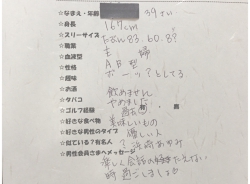 ☆なまえ・年齢 39さい
☆身長 167cm
☆スリーサイズ 83.60.87
☆職業 主婦
☆血液型 AB型
☆性格 ボーッ?としてる
☆趣味
☆お酒 飲めません
☆タバコ やめました
☆ゴルフ経験 過去 有 無
☆好きな食べ物 美味しいもの
☆好きな男性のタイプ 優しい人
☆似ている?有名人 ? 浜崎あゆみ
☆男性会員さまへメッセージ
楽しい会話の
時過ごしましょう